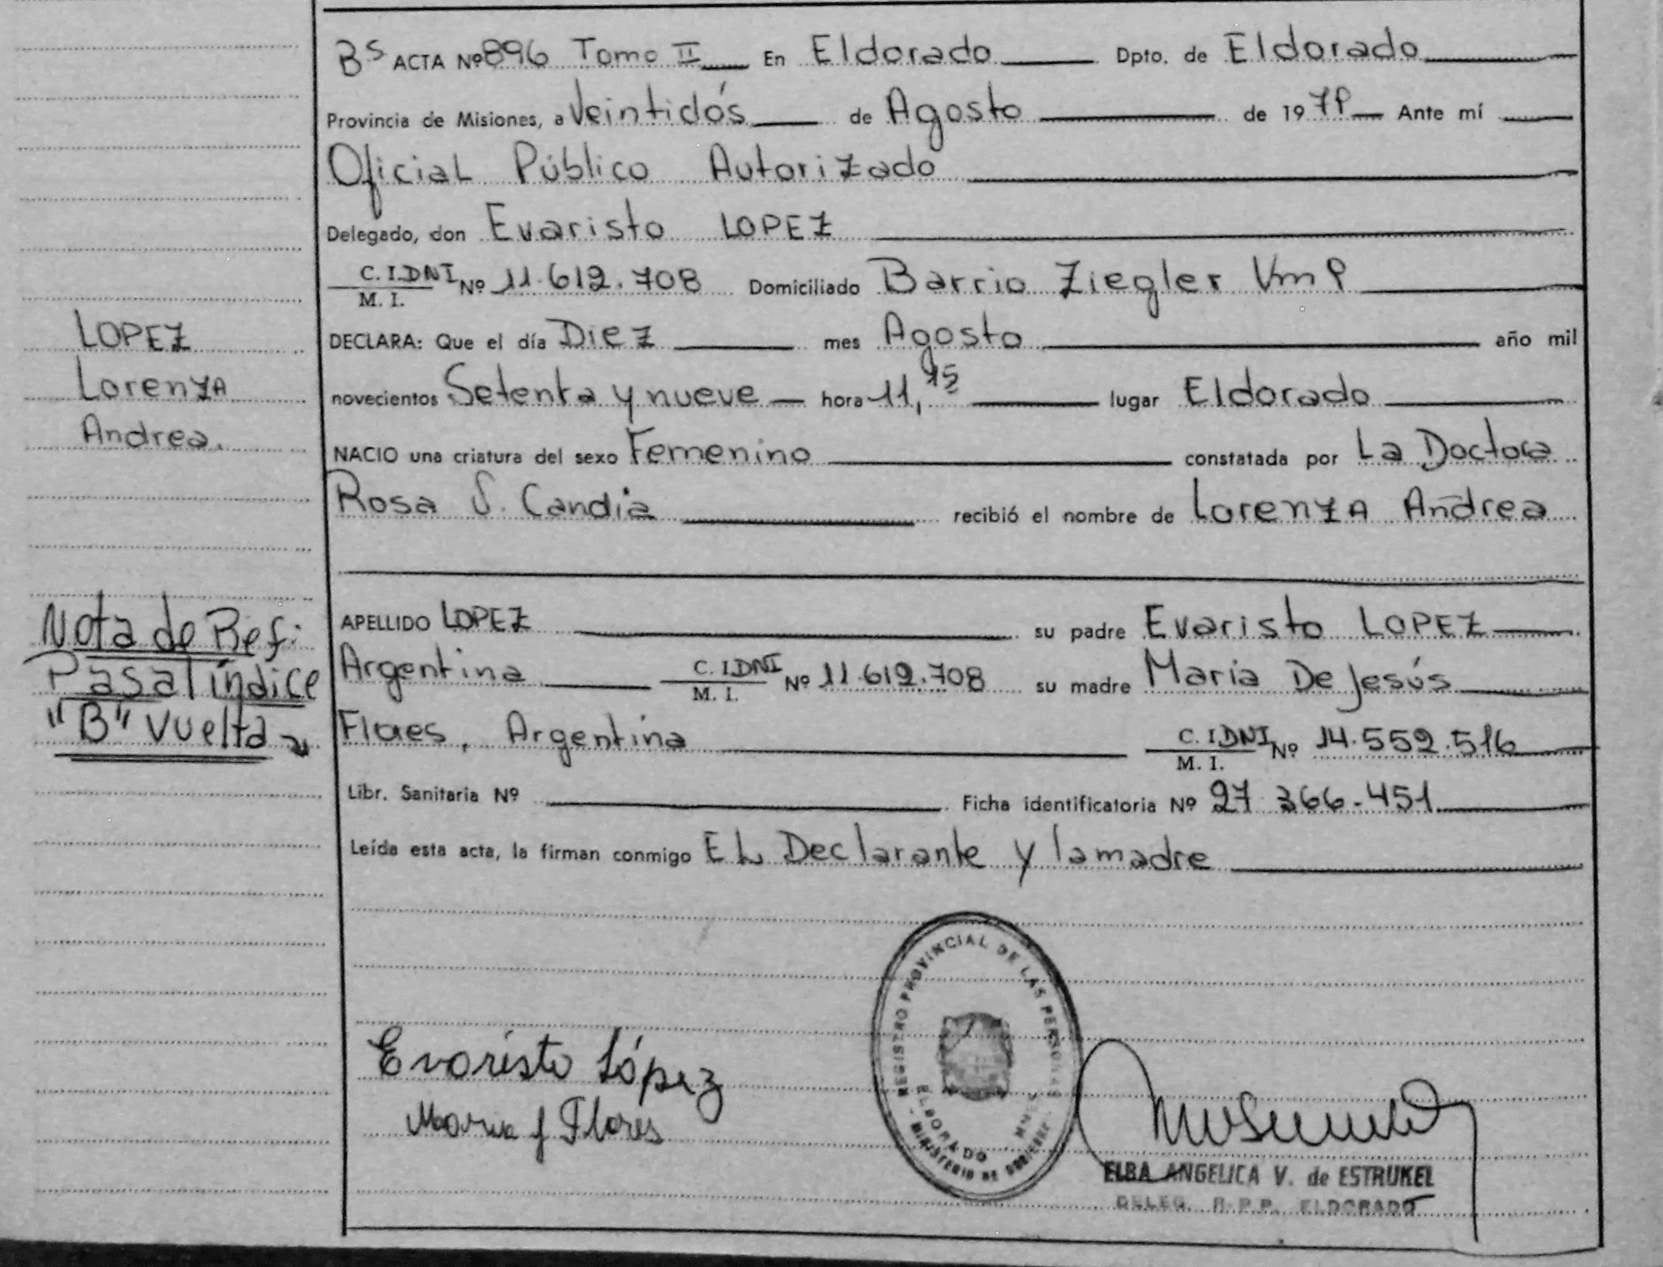 Bs ACTA Nº 896 Tomo II En Eldorado Dpto. de Eldorado
Provincia de Misiones, a Veintidós de Agosto de 1979 Ante mí
Oficial Público Autorizado
Delegado, don Evaristo LOPEZ
C. I. DNI Nº 11.612.708 Domiciliado Barrio Ziegler Km 9
M. I.
DECLARA: Que el día Diez mes Agosto año mil
novecientos Setenta y nueve hora 11,15 lugar Eldorado
NACIO una criatura del sexo Femenino constatada por La Doctora
Rosa S. Candia recibió el nombre de Lorenza Andrea
LOPEZ
Lorenza
Andrea.
APELLIDO LOPEZ su padre Evaristo LOPEZ
Argentina C. I. DNI Nº 11.612.708 su madre María De Jesús
M. I.
Flores, Argentina C. I. DNI Nº 14.552.516
M. I.
Nota de Ref:
Pasa l índice
"B" Vuelta
Libr. Sanitaria Nº Ficha identificatoria Nº 27.366.451
Leída esta acta, la firman conmigo EL Declarante y la madre
Evaristo López
Maria J Flores
REGISTRO PROVINCIAL DE LAS PERSONAS
ELDORADO MNES
MINISTERIO DE GOBIERNO
ELBA ANGELICA V. de ESTRUKEL
DELEG. R.P.P. ELDORADO